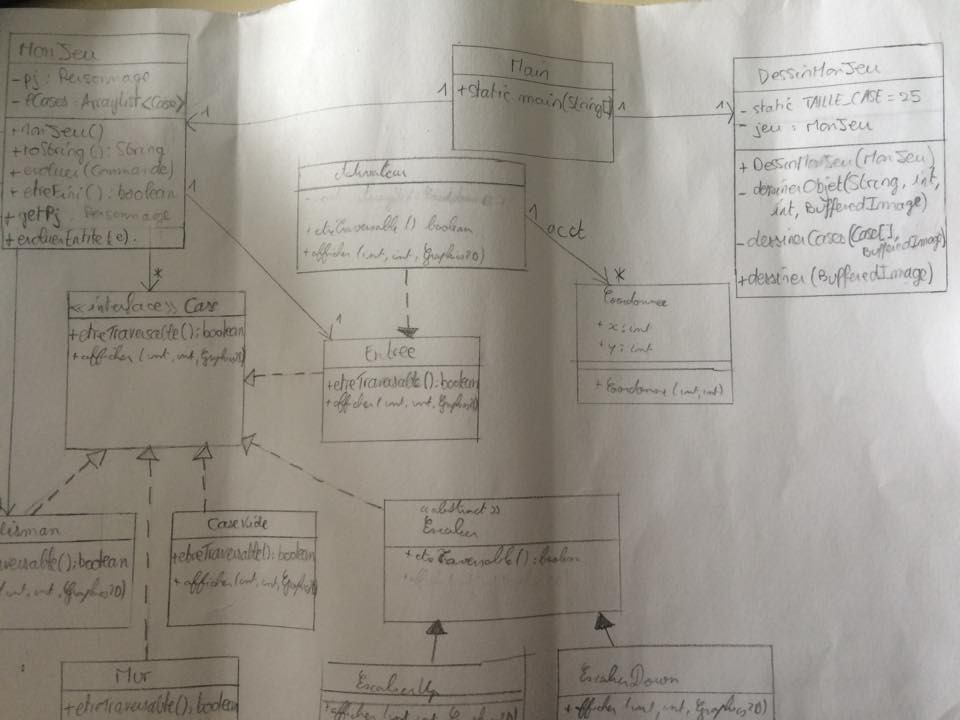 MonJeu
- pj : Personnage
- lCases : ArrayList<Case>
+ MonJeu()
+ toString() : String
+ evoluer(Commande)
+ etreFini() : boolean
+ getPj Personnage
+ evoluerEntite(e).
1
1
*
Main
+ static main(String[]
1
1
DessinMonJeu
- static TAILLE_CASE = 25
- jeu : MonJeu
+ DessinMonJeu(MonJeu)
- dessinerObjet(String, int,
int, BufferedImage)
- dessinerCases(Case[],
BufferedImage)
+ dessiner(BufferedImage)
+ etreTraversable() boolean
+ afficher(int, int, Graphics2D)
1
acct
*
Coordonnee
+ x : int
+ y : int
+ Coordonnee(int, int)
<<interface>> Case
+ etreTraversable() : boolean
+ afficher(int, int, Graphics2D)
1
Entree
+ etreTraversable() : boolean
+ afficher(int, int, Graphics2D)
lisman
versable() : boolean
int, int, Graphics2D)
CaseVide
+ etreTraversable() : boolean
+ afficher(int, int, Graphics2D)
<<abstract>>
Escalier
+ etreTraversable() : boolean
Mur
+ etreTraversable() : boolean
EscalierUp
+ afficher(int, int, Graphics2D)
EscalierDown
+ afficher(int, int, Graphics2D)